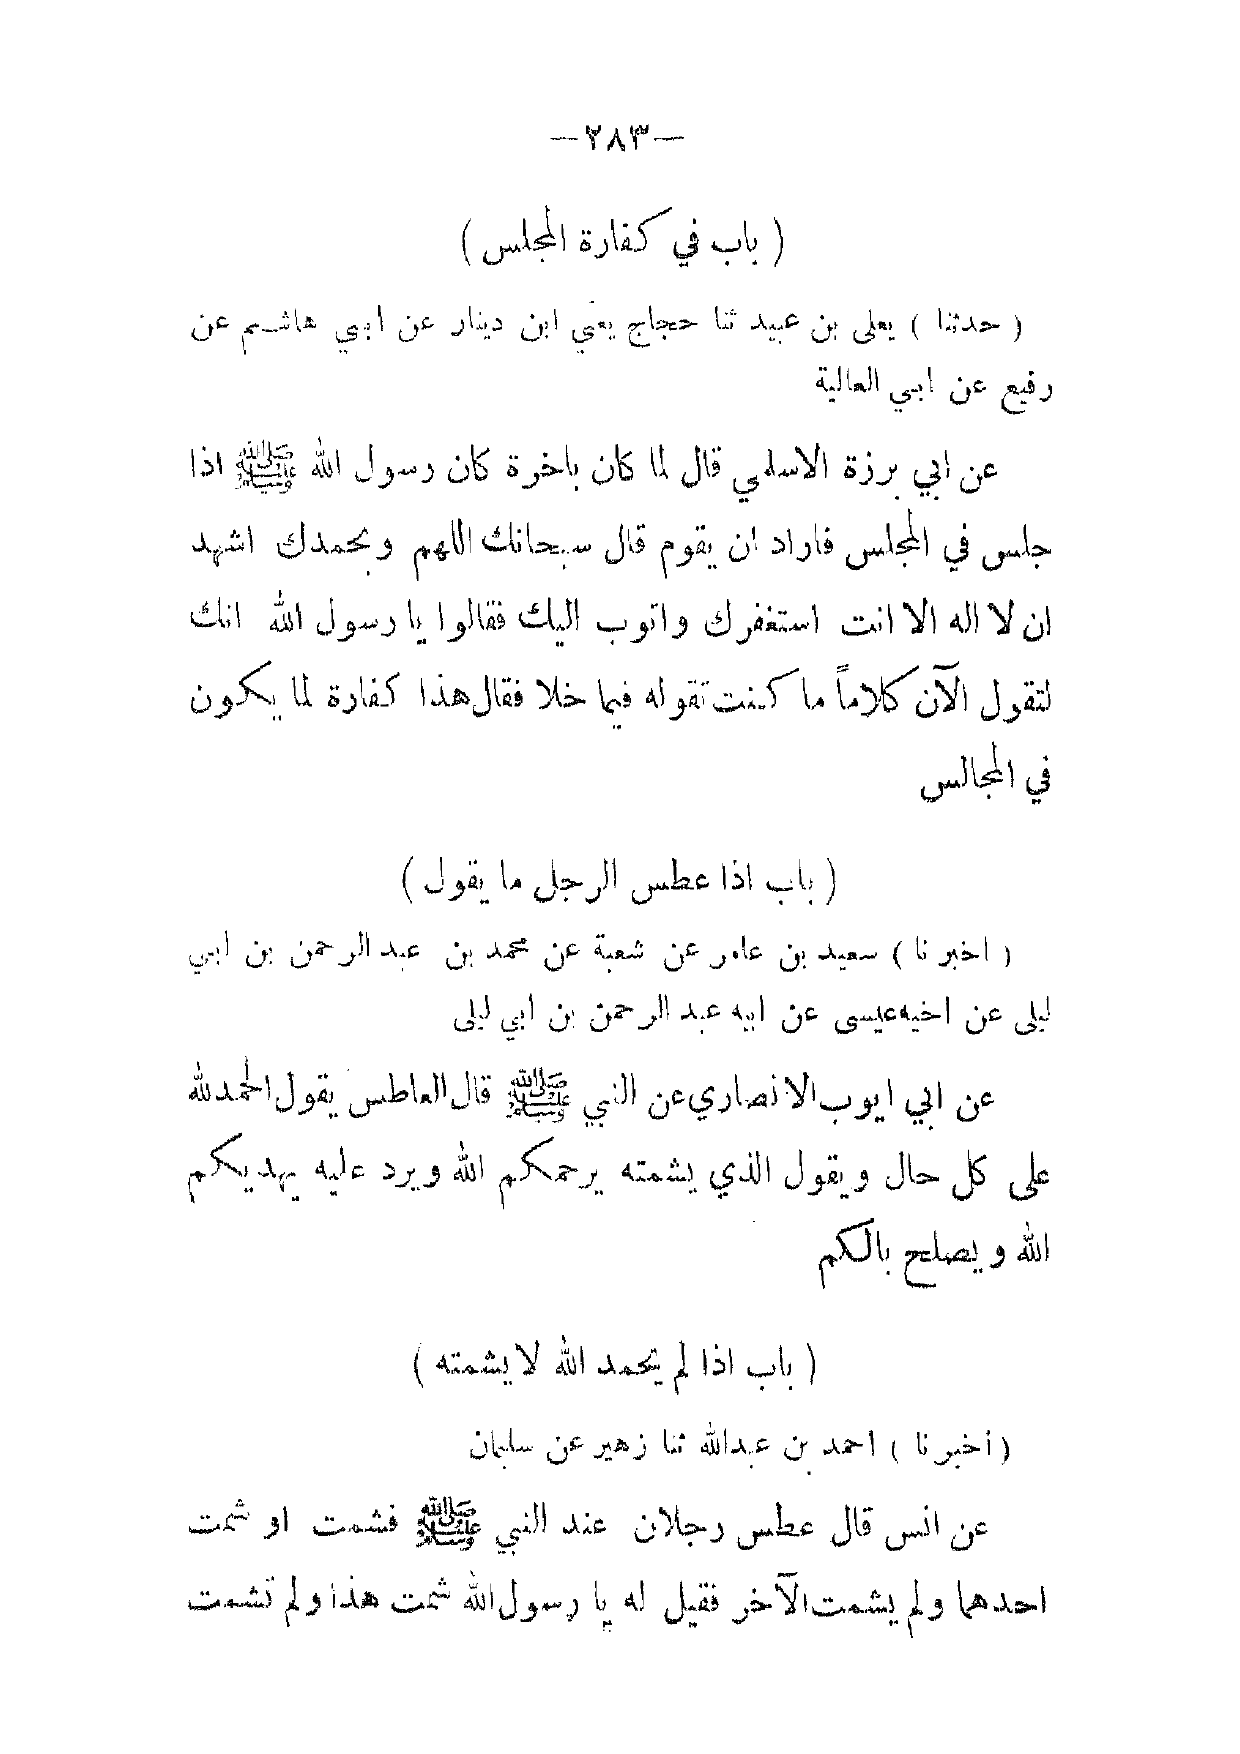 —٢٨٣—
( باب في كفارة المجلس )
( حدثنا ) يعلى بن عبيد ثنا حجاج يعني ابن دينار عن ابي هاشم عن
رفيع عن ابي العالية
عن ابي برزة الاسلمي قال لما كان باخرة كان رسول الله ﷺ اذا
جلس في المجلس فاراد ان يقوم قال سبحانك اللهم وبحمدك اشهد
ان لا اله الا انت استغفرك واتوب اليك فقالوا يا رسول الله انك
لتقول الآن كلاماً ما كنت تقوله فيما خلا فقال هذا كفارة لما يكون
في المجالس
( باب اذا عطس الرجل ما يقول )
( اخبرنا ) سعيد بن عامر عن شعبة عن محمد بن عبد الرحمن بن ابي
ليلى عن اخيه عيسى عن ابيه عبد الرحمن بن ابي ليلى
عن ابي ايوب الانصاري عن النبي ﷺ قال العاطس يقول الحمد لله
على كل حال ويقول الذي يشمته يرحمكم الله ويرد عليه يهديكم
الله ويصلح بالكم
( باب اذا لم يحمد الله لا يشمته )
( أخبرنا ) احمد بن عبد الله ثنا زهير عن سليمان
عن انس قال عطس رجلان عند النبي ﷺ فشمت او شمت
احدهما ولم يشمت الآخر فقيل له يا رسول الله شمت هذا ولم تشمت